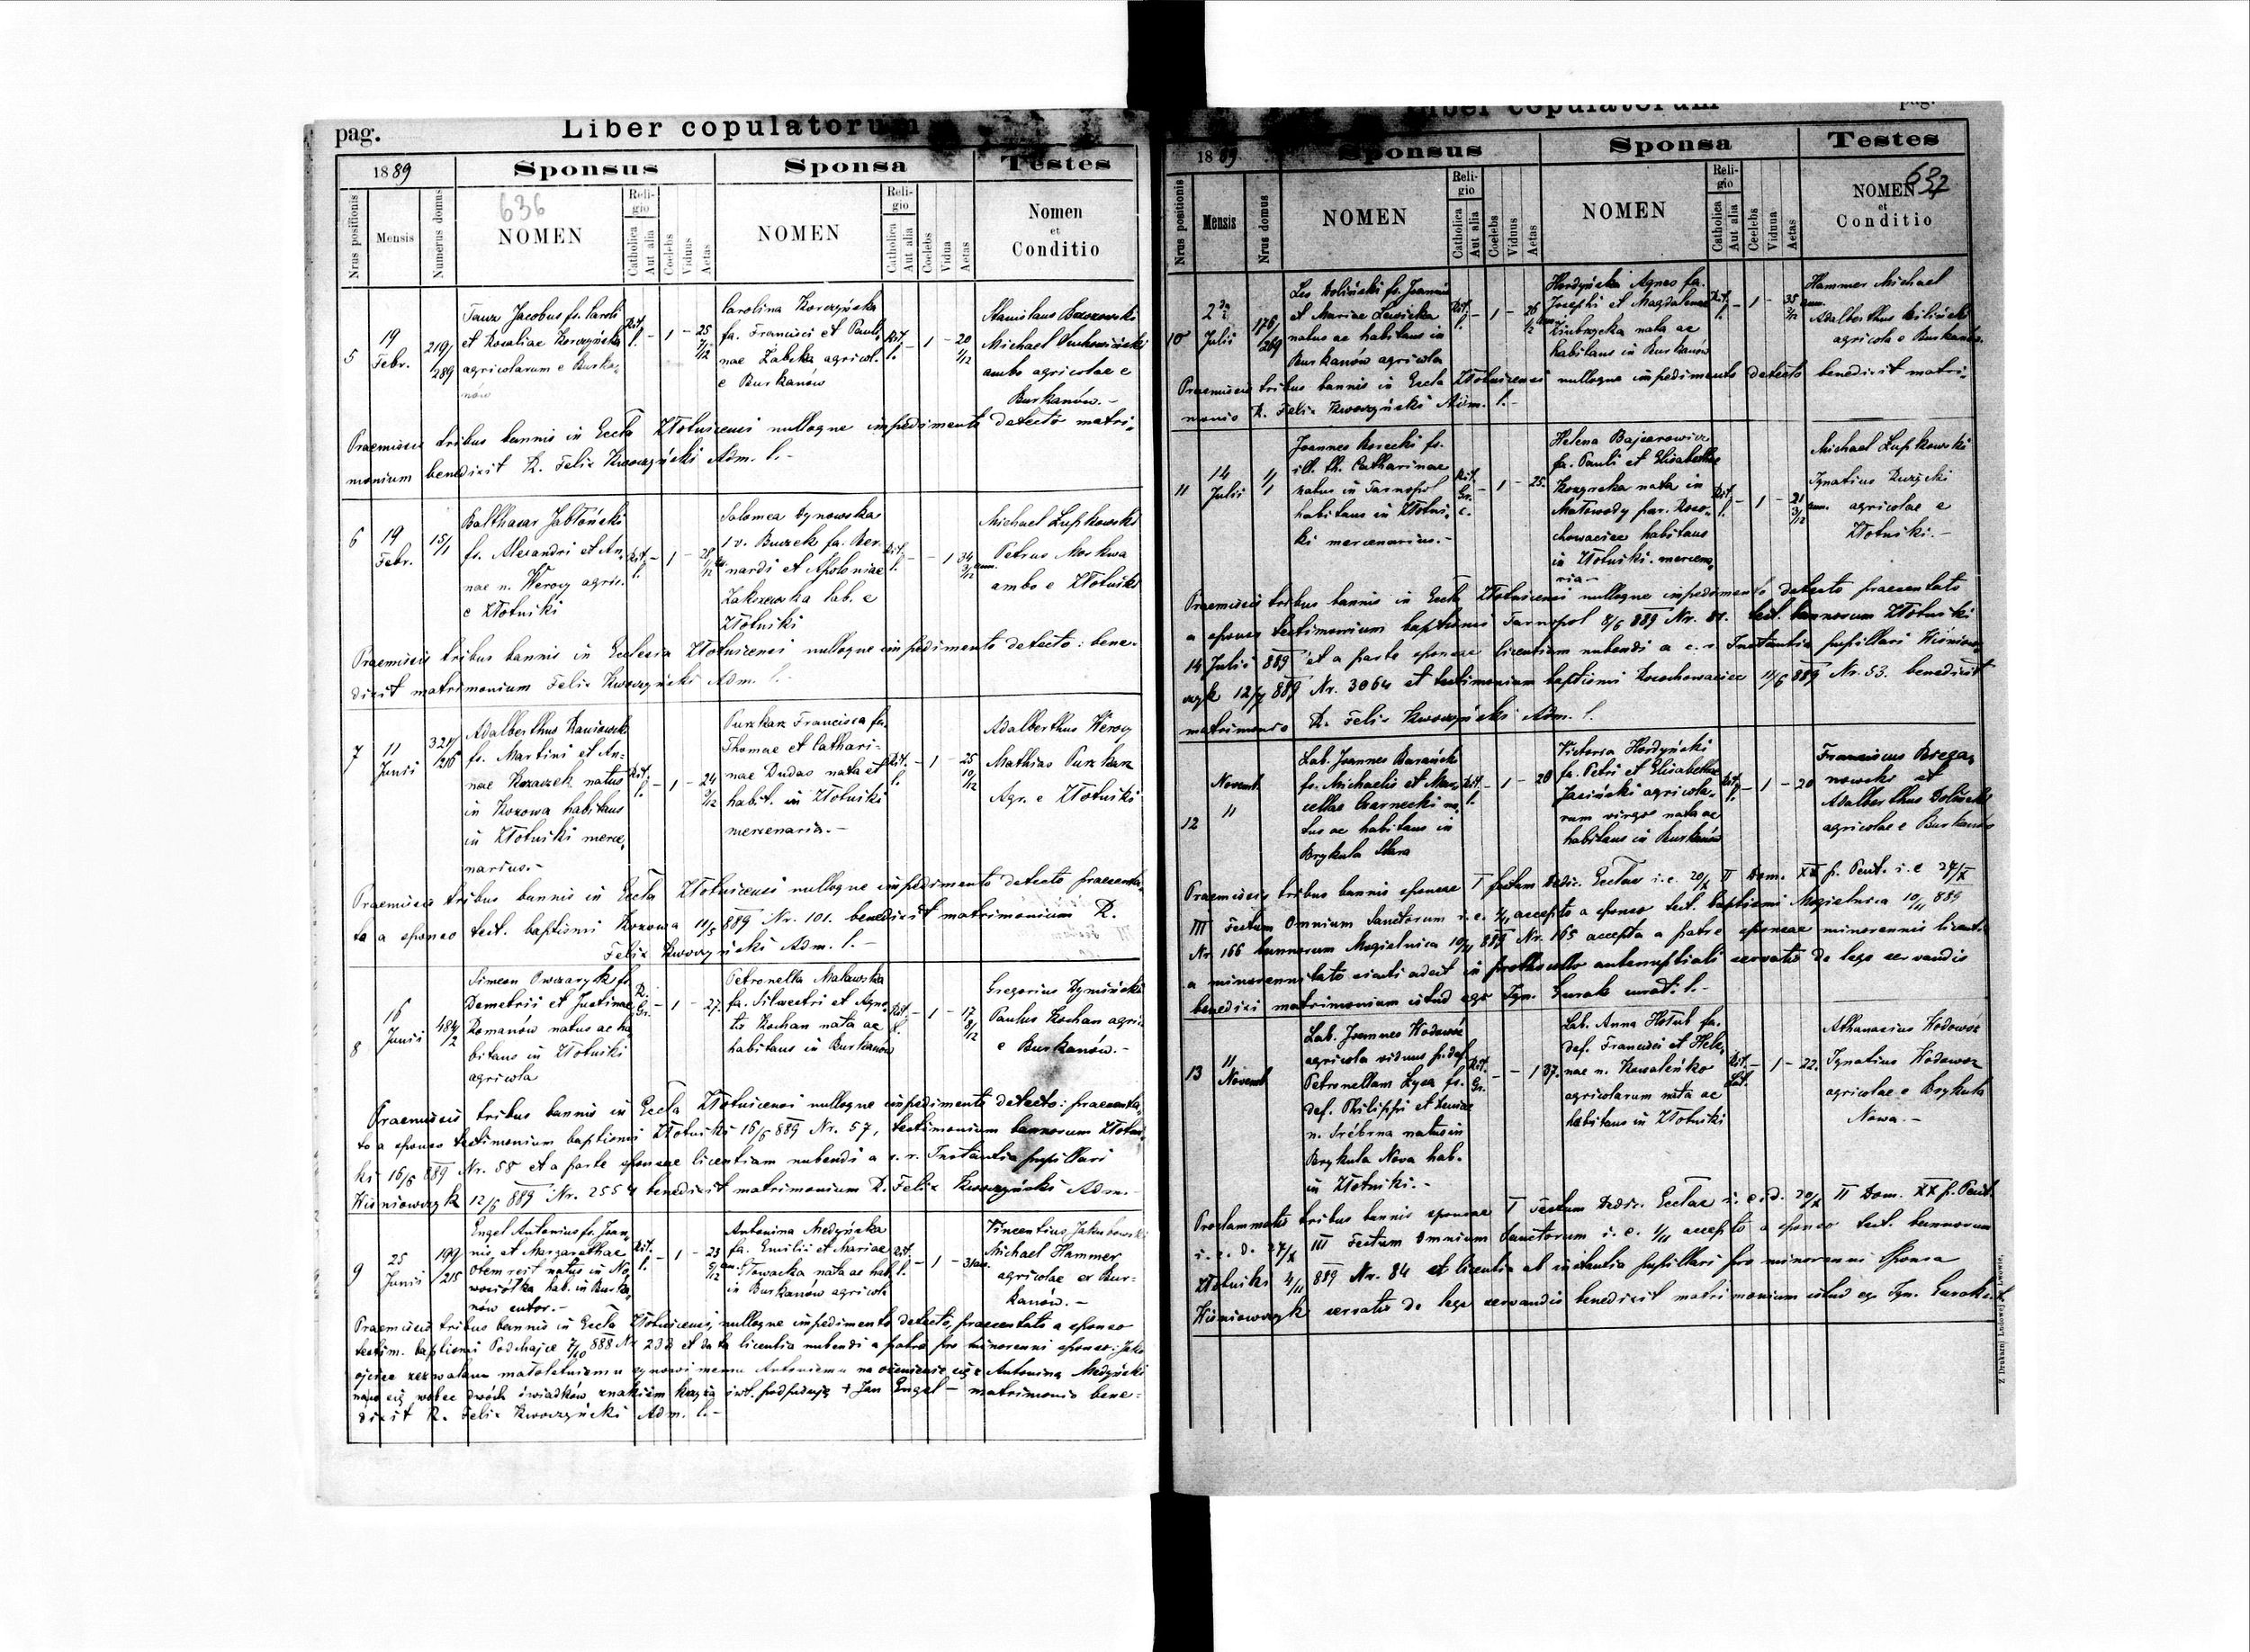 pag.
Liber copulatorum
1889
Sponsus
Sponsa
Testes
Nrus positionis
Mensis
Numerus domus
636
NOMEN
Religio
Catholica
Aut alia
Coelebs
Viduus
Aetas
NOMEN
Religio
Catholica
Aut alia
Coelebs
Vidua
Aetas
Nomen
et
Conditio
5
19
Febr.
219/
289
Jacobus fs. Caroli
et Rosaliae Korczyńska
agricolarum e Burka-
nów
Rit.
l.
- 1 - 25
7/12
Carolina Korczyńska
fa. Francisci et Pauli-
nae Zabska agricol.
e Burkanów
Rit.
l.
- 1 - 20
Stanislaus
Michael
ambo agricolae e
Burkanów.-
Praemissis tribus bannis in Eccla Złotnicensi nulloque impedimento detecto matri-
monium benedixit R. Felix Kwoczyński Adm. l.-
6
19
Febr.
15/1
Balthasar Jabłoński
fs. Alexandri et An-
nae n. Werocy agric.
e Złotniki
Rit.
l.
- 1 - 28
Salomea Dynowska
1 v. Buczek fa. Ber-
nardi et Apoloniae
Zakrzewska lab. e
Złotniki
Rit.
l.
- - 1 34
Michael Łupkowski
Petrus Moskwa
ambo e Złotniki
Praemissis tribus bannis in Ecclesia Złotnicensi nulloque impedimento detecto: bene-
dixit matrimonium Felix Kwoczyński Adm. l.-
7
11
Junii
321/
216
Adalberthus Raniowski
fs. Martini et An-
nae Kozaczek natus
in Kozowa habitans
in Złotniki merce-
narius.-
Rit.
l.
- 1 - 24
9/12
Puzkar Francisca fa.
Thomae et Cathari-
nae Dudas nata et
habit. in Złotniki
mercenaria.-
Rit.
l.
- 1 - 25
10/12
Adalberthus Werocy
Mathias Puzkar
Agr. e Złotniki
Praemissis tribus bannis in Eccla Złotnicensi nulloque impedimento detecto praesenta-
to a sponso test. baptismi Kozowa 11/5 889 Nr. 101. benedixit matrimonium R.
Felix Kwoczyński Adm. l.-
8
16
Junii
484/
2
Simeon Owczaryk fs.
Demetrii et Justinae
Romanów natus ac ha-
bitans in Złotniki
agricola
R.
Gr.
- 1 - 27.
Petronella Makowska
fa. Silvestri et Agne-
tis Kochan nata ac
habitans in Burkanów
Rit.
l.
- 1 - 17
8/12
Gregorius Dymiński
Paulus Kochan agri.
e Burkanów.-
Praemissis tribus bannis in Eccla Złotnicensi nulloque impedimento detecto: praesenta-
to a sponso testimonium baptismi Złotniki 16/6 889 Nr. 57, testimonium bannorum Złotni-
ki 16/6 889 Nr. 58 et a parte sponsae licentiam nubendi a c. r. Instantia pupillari
Wiśniowczyk 12/6 889 Nr. 2554 benedixit matrimonium R. Felix Kwoczyński Adm.-
9
25
Junii
199/
215
Engel Antonius fs. Joan-
nis et Margarethae
natus in No-
wosiółka hab. in Burka-
nów sutor.-
Rit.
l.
- 1 - 23
5/12
Antonina Medyńska
fa. Emilii et Mariae
Słowacka nata ac hab.
in Burkanów agricola
Rit.
l.
- 1 - 31 an.
Vincentius Jakubowski
Michael Hammer
agricolae ex Bur-
kanów.-
Praemissis tribus bannis in Eccla Złotnicensi, nulloque impedimento detecto, praesentato a sponso
testim. baptismi Podhajce 7/10 888 Nr 233 et data licentia nubendi a patre pro minorenni sponso: Jako
ojciec zezwalam małoletniemu synowi memu Antoniemu na ożenienie się z Antoniną Medyński
na co się wobec dwóch świadków znakiem krzyża św. podpisuję + Jan Engel - matrimonio bene-
dixit R. Felix Kwoczyński Adm. l.-
Liber copulatorum
pag.
1889
Sponsus
Sponsa
Testes
Nrus positionis
Mensis
Nrus domus
NOMEN
Religio
Catholica
Aut alia
Coelebs
Viduus
Aetas
NOMEN
Religio
Catholica
Aut alia
Coelebs
Vidua
Aetas
637
NOMEN
et
Conditio
10
2da
Julii
176/
269
Leo Doliński fs. Joannis
et Mariae Lewicka
natus ac habitans in
Burkanów agricola
Rit.
l.
- 1 - 26
Hordyńska Agnes fa.
Josephi et Magdalenae
nata ac
habitans in Burkanów
Rit.
l.
- 1 - 35
Hammer Michael
Adalberthus Biliński
agricola e Burkanów.
Praemissis tribus bannis in Eccla Złotnicensi nulloque impedimento detecto benedixit matri-
monio R. Felix Kwoczyński Adm. l.-
11
14
Julii
1/1
Joannes Korecki fs.
ill. th. Catharinae
natus in Tarnopol
habitans in Złotni-
ki mercenarius.-
Rit.
Gr.
c.
- 1 - 25.
Helena Bajcarowicz
fa. Pauli et Elisabethae
nata in
Małowody par. Roso-
chowaciec habitans
in Złotniki. mercena-
ria-
Rit.
l.
- 1 - 21
3/12
Michael Łupkowski
Ignatius Ruzycki
agricolae e
Złotniki.-
Praemissis tribus bannis in Eccla Złotnicensi nulloque impedimento detecto praesentato
a sponso testimonium baptismi Tarnopol 8/6 889 Nr. 81. test. bannorum Złotniki
14 Julii 889 et a parte sponsae licentiam nubendi a c. r. Instantia pupillari Wiśniow-
czyk 12/7 889 Nr. 3064 et testimonium baptismi Rosochowaciec 11/6 889 Nr. 53. benedixit
matrimonio R. Felix Kwoczyński Adm. l.
12
Novemb.
11
Lab. Joannes Barański
fs. Michaelis et Mar-
cellae Czarnecki na-
tus ac habitans in
Brykula Stara
Rit.
l.
- 1 - 28
Victoria Hordyński
fa. Petri et Elisabethae
Jasiński agricola-
rum virgo nata ac
habitans in Burkanów
Rit.
l.
- 1 - 20
Franciscus Brega-
nowski et
Adalberthus Doliński
agricolae e Burkanów
Praemissis tribus bannis sponsae I festum Dedic. Ecclae i. e. 20/X II Dom. XX p. Pent. i. e 27/X
III Festum Omnium Sanctorum i. e. 1/11 accepto a sponso test. baptismi Mogielnica 10/11 889
Nr. 166 bannorum Mogielnica 10/11 889 Nr. 165 accepta a patre sponsae minorennis licent.
a minorennitate sicuti adest in prothocollo antenuptiali servatis de lege servandis
benedixi matrimonium istud ego Ign. Gurak curat. l.-
13
11
Novemb
Lab. Joannes Wodowóz
agricola viduus p. def.
Petronellam Łyza fs.
def. Philippi et Xeniae
n. Srébrna natus in
Brykula Nova hab.
in Złotniki.-
Rit.
Gr.
- - 1 37.
Lab. Anna Hołub fa.
def. Francisci et Hele-
nae n. Kowaleńko
agricolarum nata ac
habitans in Złotniki
Rit.
Lat.
- 1 - 22.
Athanasius Wodowóz
Ignatius Wodowoz
agricolae e Brykula
Nowa.-
Proclammatis tribus bannis sponsae I Festum Dedic. Ecclae i. e. d. 20/X II Dom. XX p. Pent.
i. e. d. 27/X III Festum Omnium Sanctorum i. e. 1/11 accepto a sponso test. bannorum
Złotniki 4/11 889 Nr. 84 et licentia ab instantia pupillari pro minorenni Sponsa
Wiśniowczyk servatis de lege servandis benedixit matrimonium istud ego Ign. Gurak
Z Drukarni Ludowej we Lwowie.